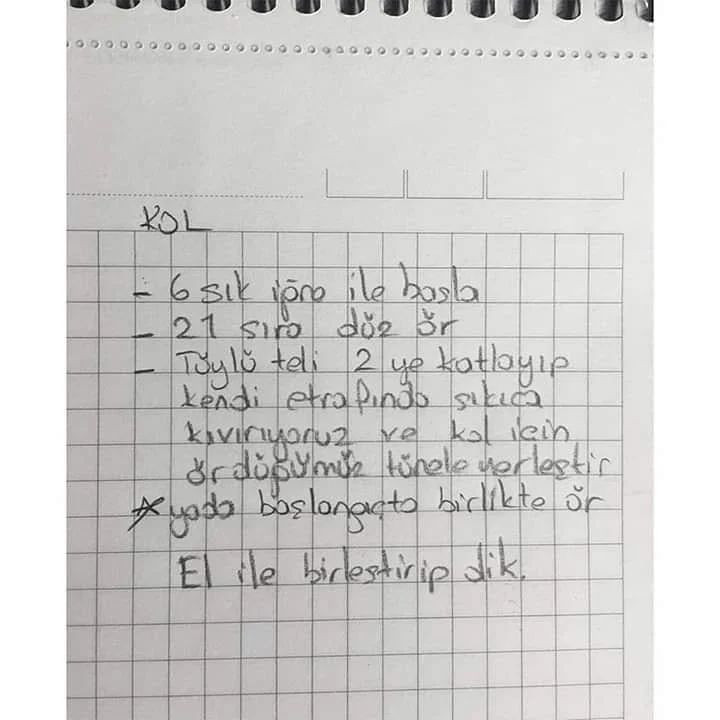 KOL
- 6 sık iğne ile başla
- 21 sıra düz ör
- Tüylü teli 2 ye katlayıp
kendi etrafında sıkıca
kıvırıyoruz ve kol için
ördüğümüz tünele yerleştir
* yada başlangıçta birlikte ör
El ile birleştirip dik.